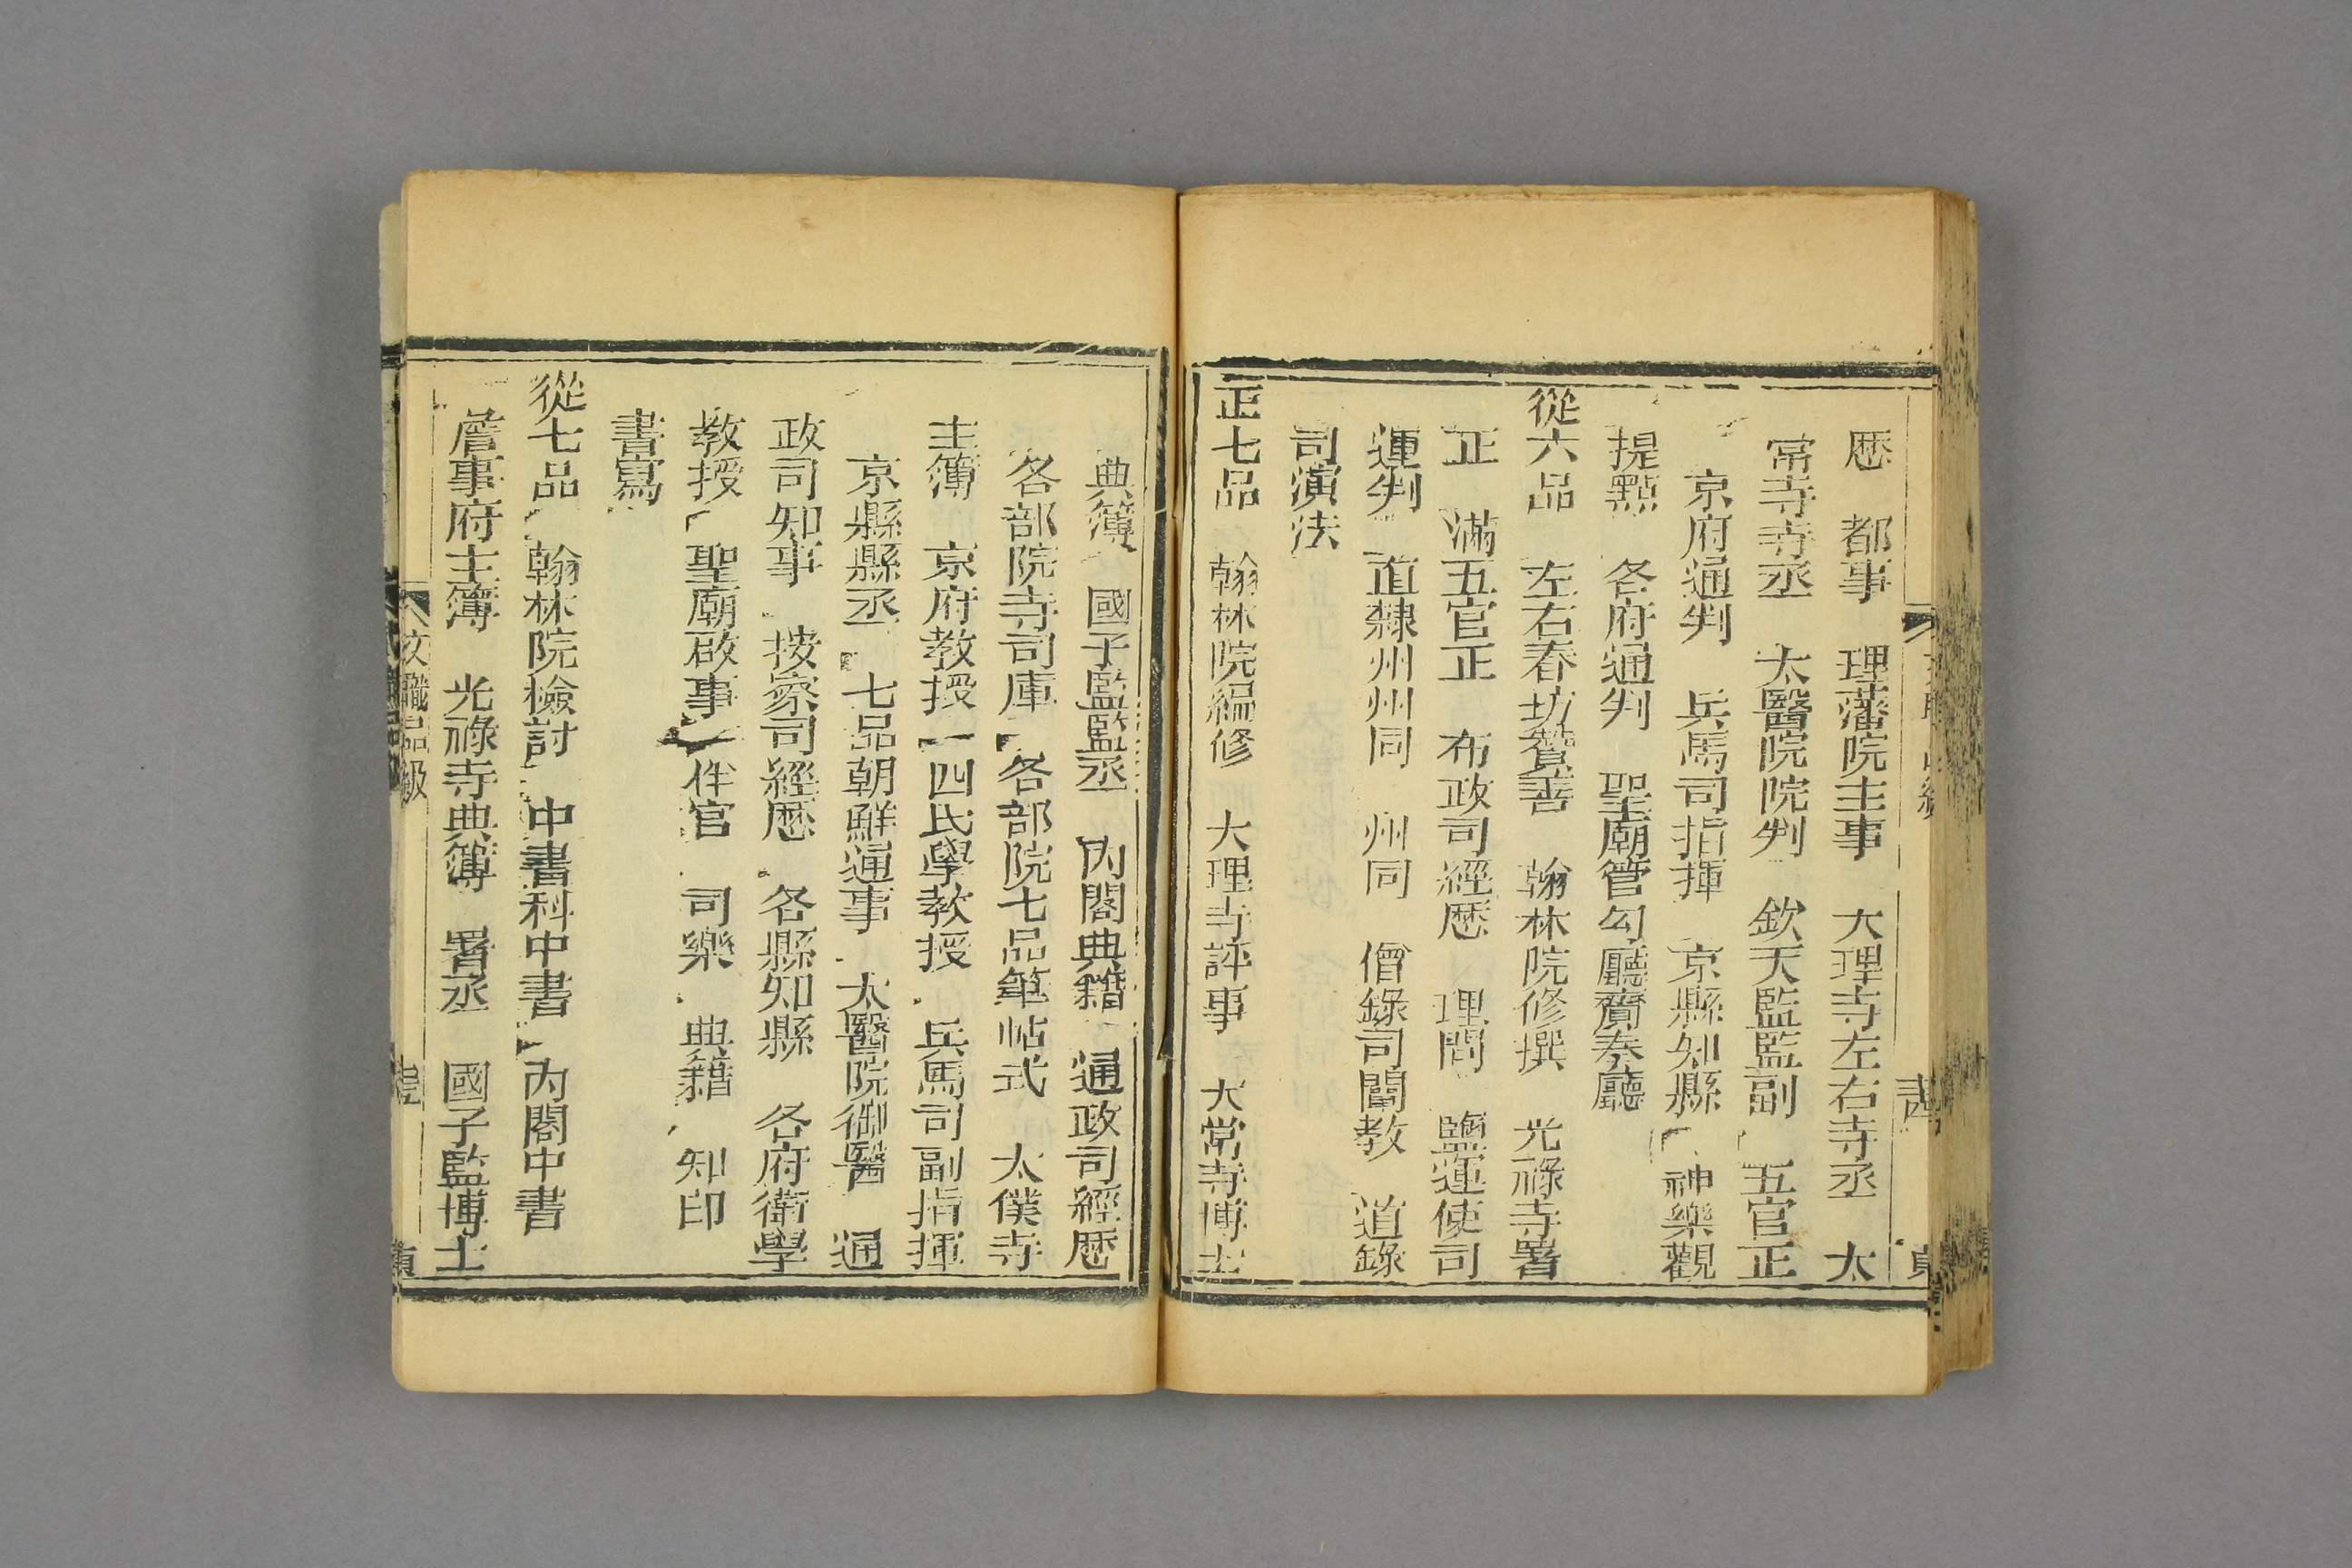 歷　都事　理藩院主事　大理寺左右寺丞　太
常寺寺丞　太醫院院判　欽天監監副　五官正
京府通判　兵馬司指揮　京縣知縣　神樂觀
提點　各府通判　聖廟管勾廳賫奏廳
從六品　左右春坊贊善　翰林院修撰　光祿寺署
正　滿五官正　布政司經歷　理問　鹽運使司
運判　直隸州州同　州同　僧錄司闡教　道錄
司演法
正七品　翰林院編修　大理寺評事　太常寺博士
典簿　國子監監丞　內閣典籍　通政司經歷
各部院寺司庫　各部院七品筆帖式　太僕寺
主簿　京府教授　四氏學教授　兵馬司副指揮
京縣縣丞　七品朝鮮通事　太醫院御醫　通
政司知事　按察司經歷　各縣知縣　各府衛學
教授　聖廟啟事　伴官　司樂　典籍　知印
書寫
從七品　翰林院檢討　中書科中書　內閣中書
詹事府主簿　光祿寺典簿　署丞　國子監博士
文職品級